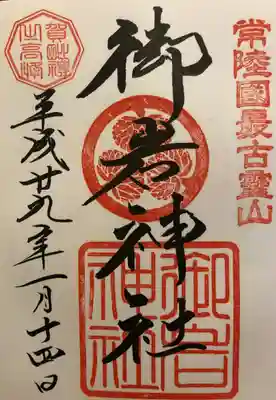 常陸國最古靈山
御岩神社
御岩神社
賀毗禮之高峰
平成廿九年一月十四日